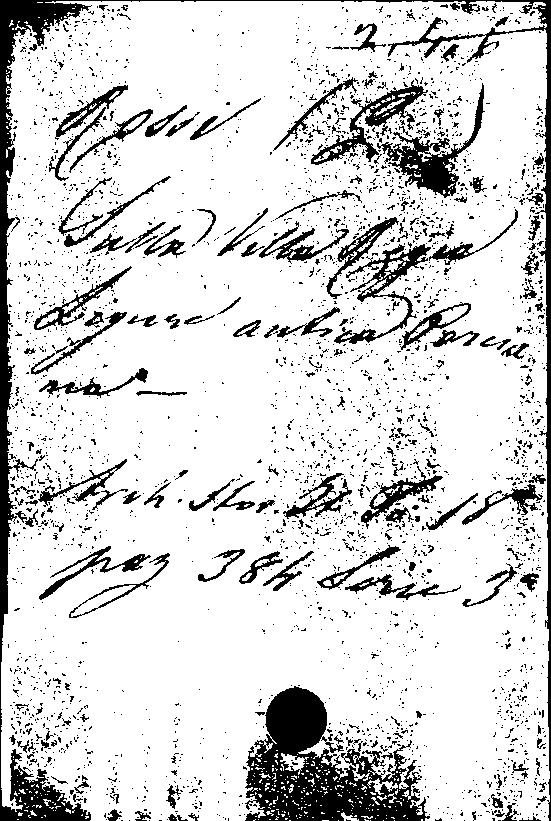 2. 4. 6
Rossi (G)
Sulla Villa Regia
Ligure antica Porcia
nia —
Arch. Stor. It. To: 18°
pag 384 Serie 3ª